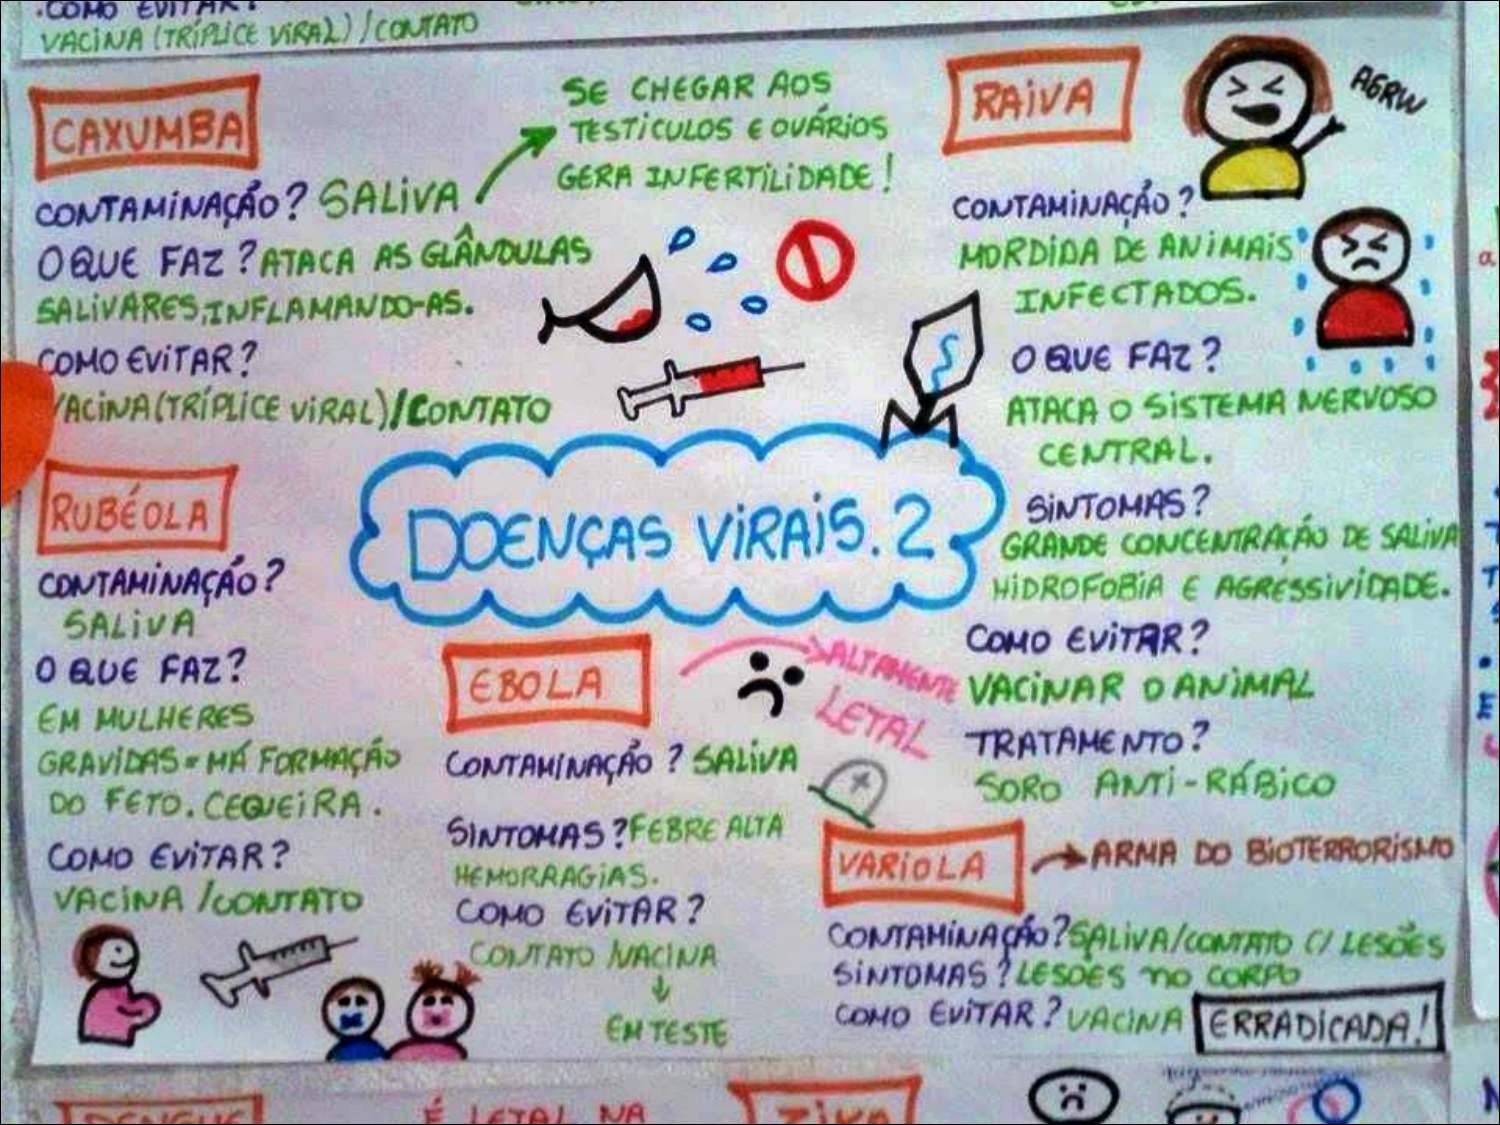 .COMO EVITAR?
VACINA (TRÍPLICE VIRAL) / CONTATO
CAXUMBA
CONTAMINAÇÃO? SALIVA
SE CHEGAR AOS
TESTICULOS E OVÁRIOS
GERA INFERTILIDADE!
O QUE FAZ? ATACA AS GLÂNDULAS
SALIVARES, INFLAMANDO-AS.
COMO EVITAR?
VACINA (TRÍPLICE VIRAL) / CONTATO
RUBÉOLA
CONTAMINAÇÃO?
SALIVA
O QUE FAZ?
EM MULHERES
GRAVIDAS = MÁ FORMAÇÃO
DO FETO. CEGUEIRA.
COMO EVITAR?
VACINA / CONTATO
DOENÇAS VIRAIS. 2
EBOLA
ALTAMENTE
LETAL
CONTAMINAÇÃO? SALIVA
SINTOMAS? FEBRE ALTA
HEMORRAGIAS.
COMO EVITAR?
CONTATO / VACINA
EM TESTE
RAIVA
AGRW
CONTAMINAÇÃO?
MORDIDA DE ANIMAIS
INFECTADOS.
O QUE FAZ?
ATACA O SISTEMA NERVOSO
CENTRAL.
SINTOMAS?
GRANDE CONCENTRAÇÃO DE SALIVA
HIDROFOBIA E AGRESSIVIDADE.
COMO EVITAR?
VACINAR O ANIMAL
TRATAMENTO?
SORO ANTI-RÁBICO
VARIOLA
ARMA DO BIOTERRORISMO
CONTAMINAÇÃO? SALIVA/CONTATO C/ LESÕES
SINTOMAS? LESÕES NO CORPO
COMO EVITAR? VACINA ERRADICADA!
DENGUE
É LETAL NA
ZIKA